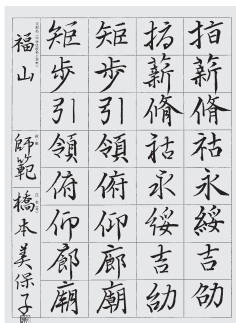 指薪脩祜永綏吉劭
指薪脩祜永綏吉劭
矩歩引領俯仰廊廟
矩歩引領俯仰廊廟
福山 師範 橋本美保子